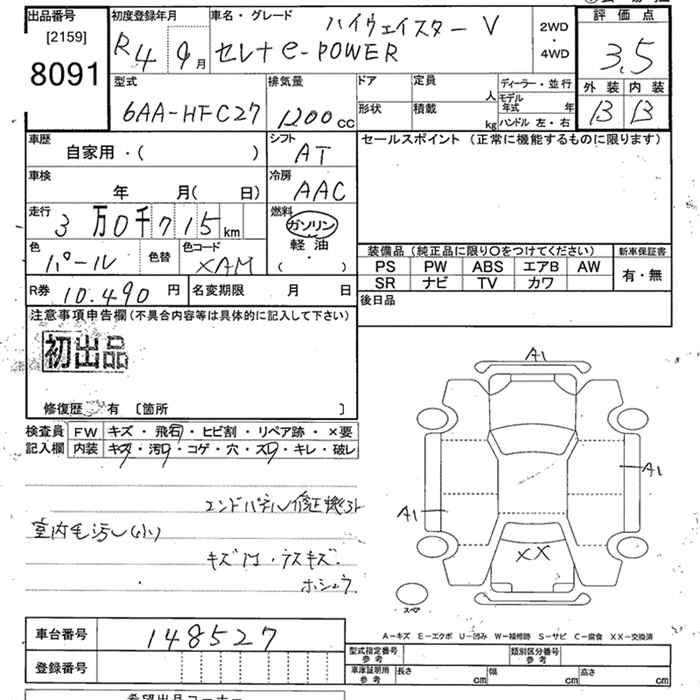 出品番号
[2159]
8091
初度登録年月
R4 9月
車名・グレード
ハイウェイスター V
セレナ e-POWER
2WD
・
4WD
評価点
3.5
外装 内装
B B
型式
6AA-HFC27
排気量
1200 cc
ドア
形状
定員 人
積載 kg
ディーラー・並行
モデル年式 年
ハンドル 左・右
車歴
自家用・( )
シフト
AT
セールスポイント (正常に機能するものに限ります)
車検
年 月( 日)
冷房
AAC
走行
3万0千715km
燃料
ガソリン
軽油
( ・ )
色
パール
色替
色コード
XAM
装備品 (純正品に限り〇をつけてください)
新車保証書
PS PW ABS エアB AW
SR ナビ TV カワ
有・無
R券 10.490 円
名変期限 月 日
後日品
注意事項申告欄(不具合内容等は具体的に記入して下さい)
初出品
修復歴 有 〔箇所 〕
検査員
記入欄
FW キズ・飛石・ヒビ割・リペア跡・×要
内装 キズ・汚レ・コゲ・穴・スレ・キレ・破レ
A1
A1
A1
XX
スペア
エンドパネル修正機外
室内毛汚れ(小)
キズ凹・ラスキズ
ホシュウ
車台番号 148527
登録番号
A-キズ E-エクボ U-凹み W-補修跡 S-サビ C-腐食 XX-交換済
型式指定番号
参考
類別区分番号
参考
車庫証明用
参考
長さ cm 幅 cm 高さ cm
希望出品コーナー